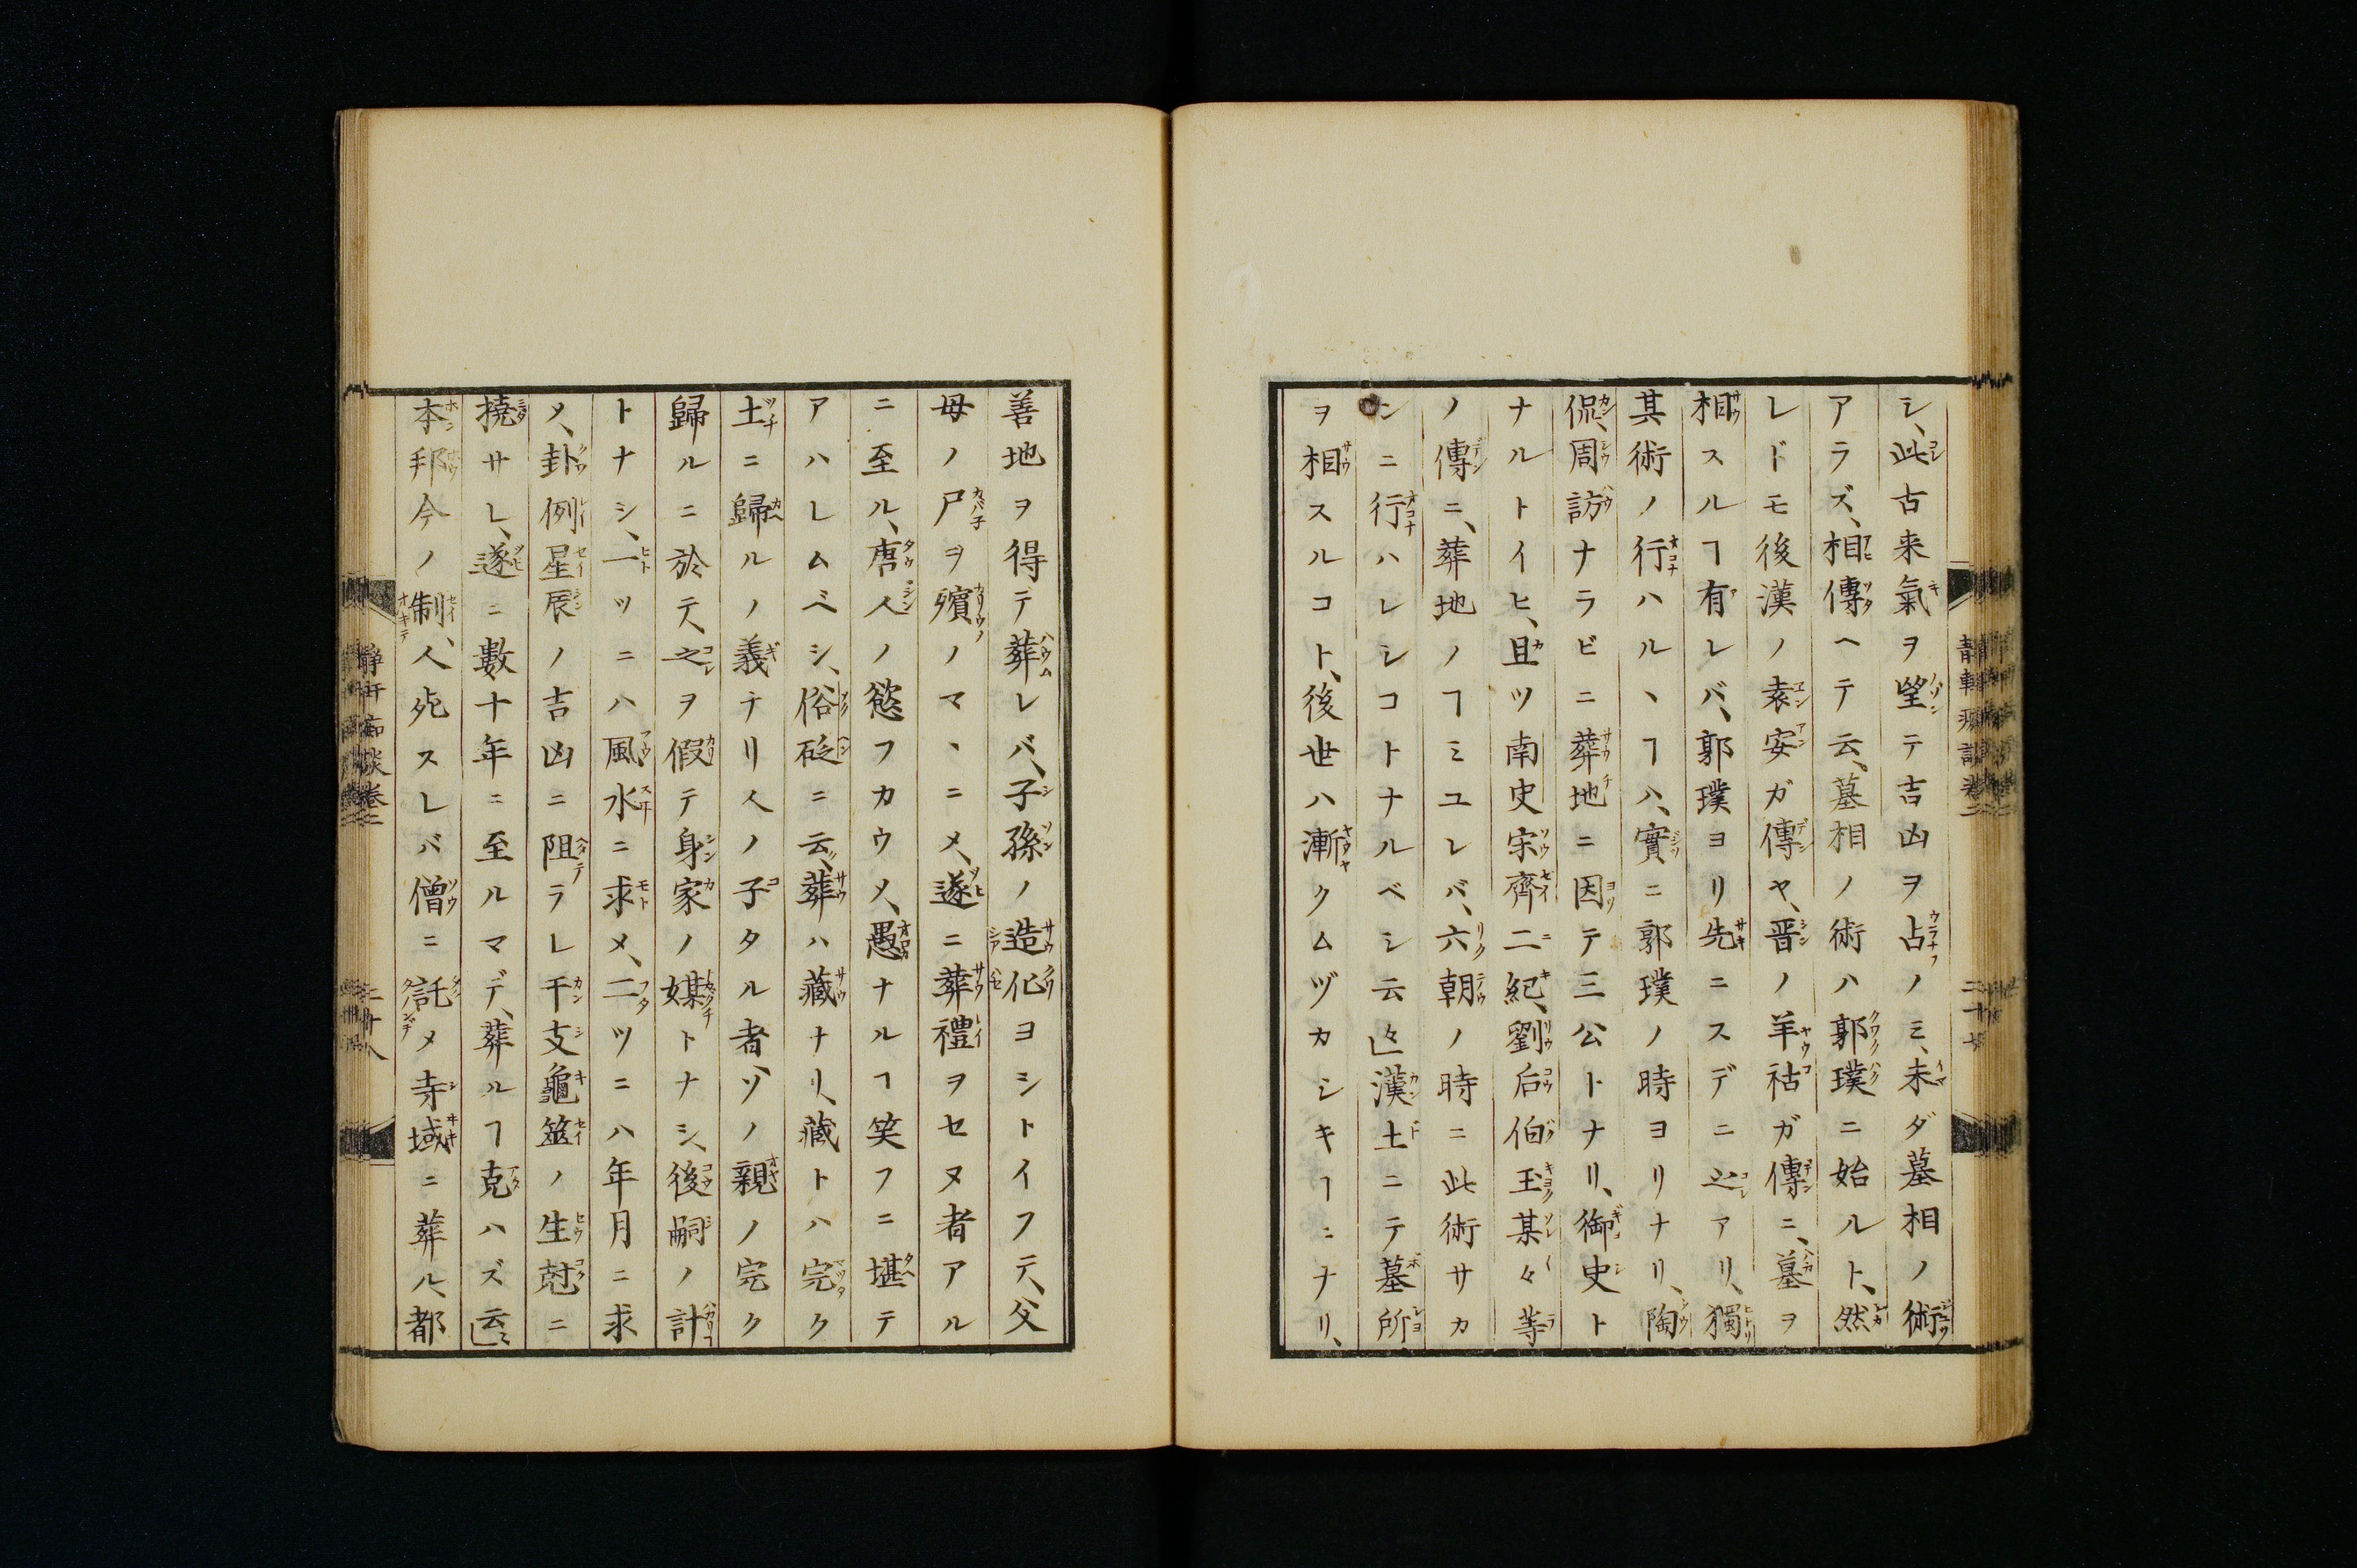 シ、此古来氣ヲ望テ吉凶ヲ占ノミ、未ダ墓相ノ術
アラズ、相傳ヘテ云、墓相ノ術ハ郭璞ニ始ルト、然
レドモ後漢ノ袁安ガ傳ヤ、晋ノ羊祜ガ傳ニ、墓ヲ
相スルヿ有レバ、郭璞ヨリ先ニスデニ之アリ、獨
其術ノ行ハルヽヿハ、實ニ郭璞ノ時ヨリナリ、陶
侃、周訪ナラビニ葬地ニ因テ三公トナリ、御史ト
ナルトイヒ、且ツ南史宋齊二紀、劉后伯玉某々等
ノ傳ニ、葬地ノヿミユレバ、六朝ノ時ニ此術サカ
ンニ行ハレシコトナルベシ云々」漢土ニテ墓所
ヲ相スルコト、後世ハ漸クムヅカシキヿニナリ、
善地ヲ得テ葬レバ、子孫ノ造化ヨシトイフテ、父
母ノ尸ヲ殯ノマヽニメ、遂ニ葬禮ヲセヌ者アル
ニ至ル、唐人ノ慾フカウメ、愚ナルヿ笑フニ堪テ
アハレムベシ、俗砭ニ云、葬ハ藏ナリ、藏トハ完ク
土ニ歸ルノ義ナリ人ノ子タル者、ソノ親ノ完ク
歸ルニ於テ、之ヲ假テ身家ノ媒トナシ、後嗣ノ計
トナシ、一ツニハ風水ニ求メ、二ツニハ年月ニ求
メ、卦例星辰ノ吉凶ニ阻ラレ干支龜筮ノ生尅ニ
撓サレ、遂ニ數十年ニ至ルマデ、葬ルヿ克ハズ云〻」
本邦今ノ制、人死スレバ僧ニ託メ寺域ニ葬ル、都